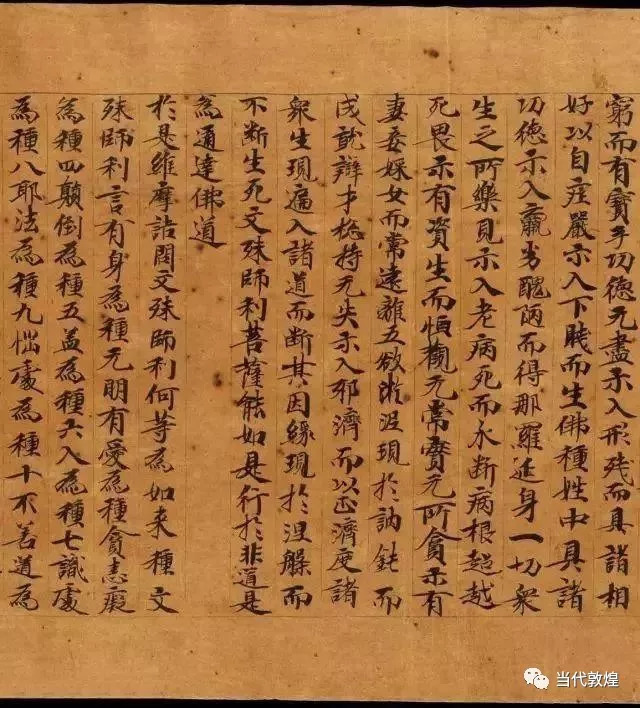 窮而有寶手功德无盡示入形殘而具諸相
好以自莊嚴示入下賤而生佛種姓中具諸
功德示入羸劣醜陋而得那羅延身一切衆
生之所樂見示入老病死而永斷病根超越
死畏示有資生而恒觀无常實无所貪示有
妻妾婇女而常遠離五欲淤泥現於訥鈍而
成就辯才捴持无失示入邪濟而以正濟度諸
衆生現遍入諸道而斷其因緣現於涅槃而
不斷生死文殊師利菩薩能如是行於非道是
為通達佛道
於是維摩詰問文殊師利何等為如来種文
殊師利言有身為種无明有愛為種貪恚癡
為種四顛倒為種五盖為種六入為種七識處
為種八耶法為種九惱處為種十不善道為
当代敦煌